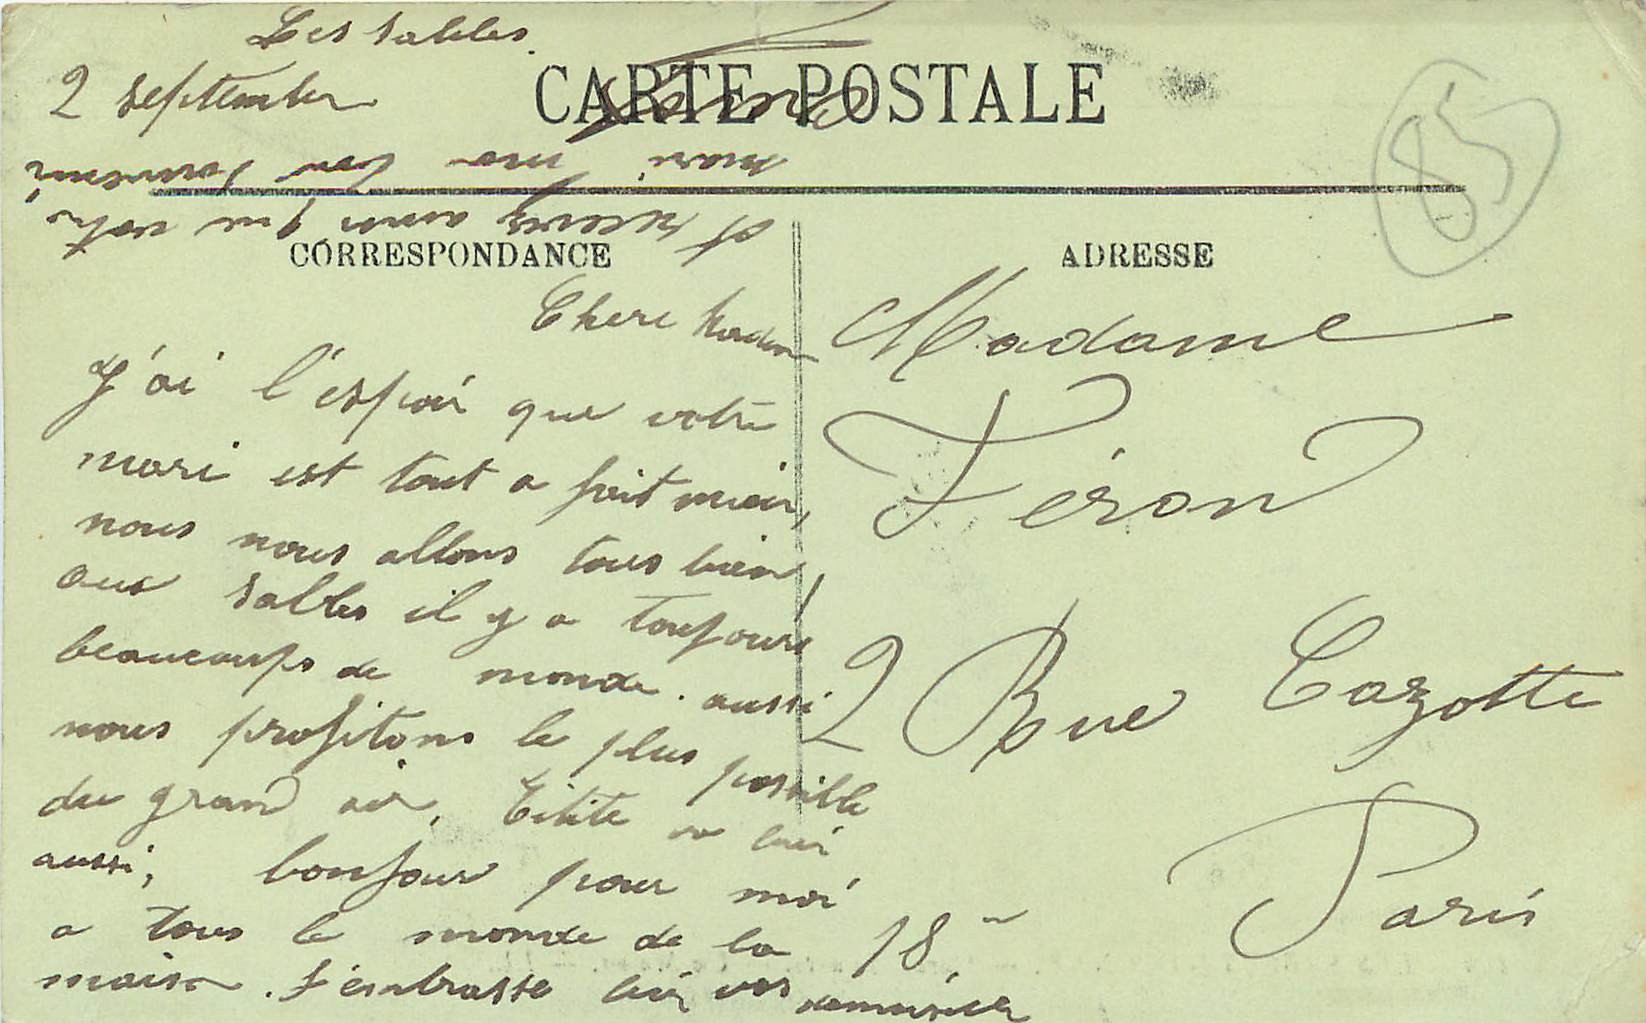 Les Sables
2 septembre
CARTE POSTALE
85
CORRESPONDANCE
ADRESSE
Chere Madam
J'ai l'espoir que votre
mari est tout a fait mieu,
nous nous allons tous bien,
aux Sables il y a toujours
beaucoups de monde. aussi
nous profitons le plus possible
du grand air, Titite va bien
aussi, bonjour pour moi
a tous le monde de la
maison. J'embrasse bien vos demoiselles
et recevez ainsi que votre
mari mes bon souvenir
Madame
Féron
2 Rue Cazotte
Paris
18